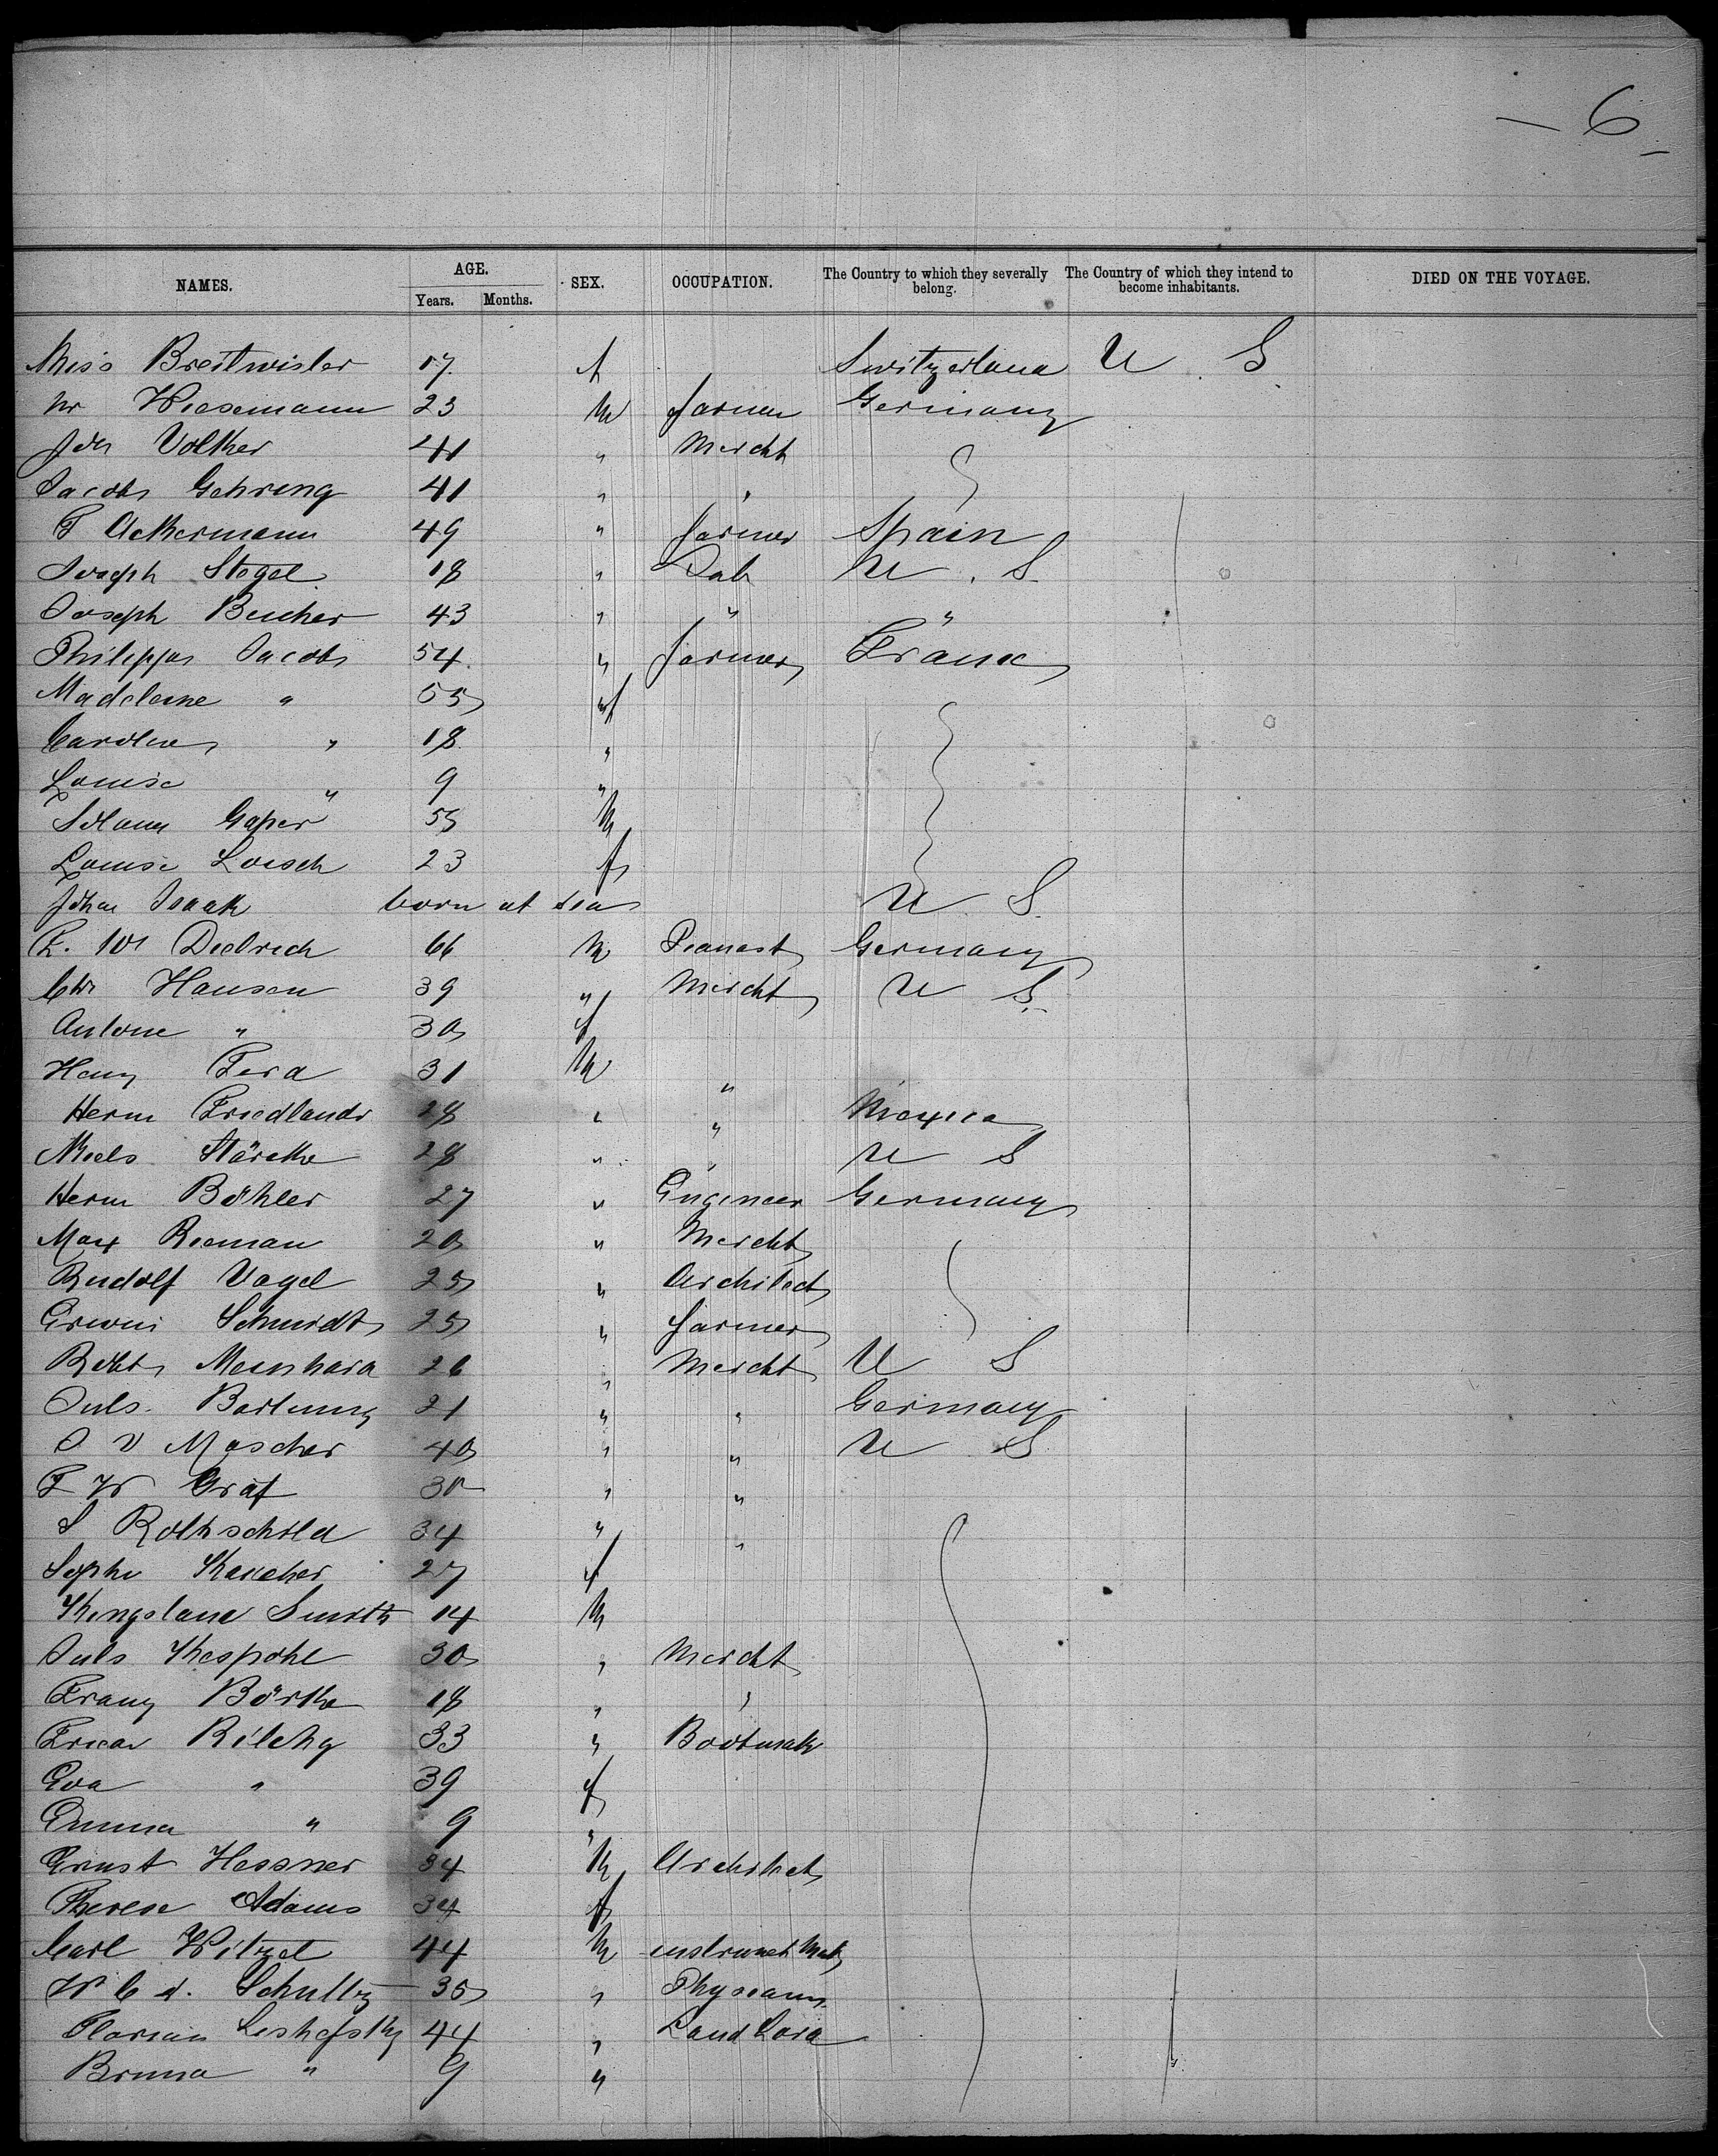 — 6 —
NAMES. AGE. Years. Months. SEX. OCCUPATION. The Country to which they severally belong. The Country of which they intend to become inhabitants. DIED ON THE VOYAGE.
Miss Breitwisler 17 f Switzerland U. S.
Wr Wiesemann 23 M farmer Germany
Joh Volker 41 " Mercht
Jacob Gehring 41 " "
F Ackermann 49 " farmer Spain
Joseph Stegel 18 " Lab U. S.
Joseph Bucher 43 " " "
Philipp Jacob 54 " farmer France
Madeleine " 55 f
Caroline " 18 "
Louise " 9 "
Gaper 55 M
Louise Loesch 23 f
Johan Isaak born at sea U. S.
F. W. Diedrich 66 M Pianest Germany
Chr Hansen 39 " Mercht U S.
Antone " 30 f
Henry Ferd 31 M "
Herm Friedlandr 28 " " Mexico
Niels Stärcke 28 " " U S
Herm Böhler 27 " Engineer Germany
Max Rieman 20 " Mercht
Rudolf Vogel 25 " Architect
Erwin Schmidt 25 " farmer
Robt Meinhard 26 " Mercht U S
Juls. Bartuny 21 " " Germany
J V Mascher 40 " " U S
F W Graf 30 " "
S Rothschild 34 " "
Sophie Kaucher 27 f
Kingsland Smith 14 M
Juls Kespohl 30 " Mercht
Franz Börke 18 " "
Rilchy 33 " Bootmak
Eva " 39 f
Emma " 9 "
Ernst Hessner 34 M Architect
Therese Adams 34 f
Carl Witzel 44 M instrumet Mak
W C d. Schultz 35 " Physician
Florian Leshofsky 44 " Land Lord
Bruno " 9 "